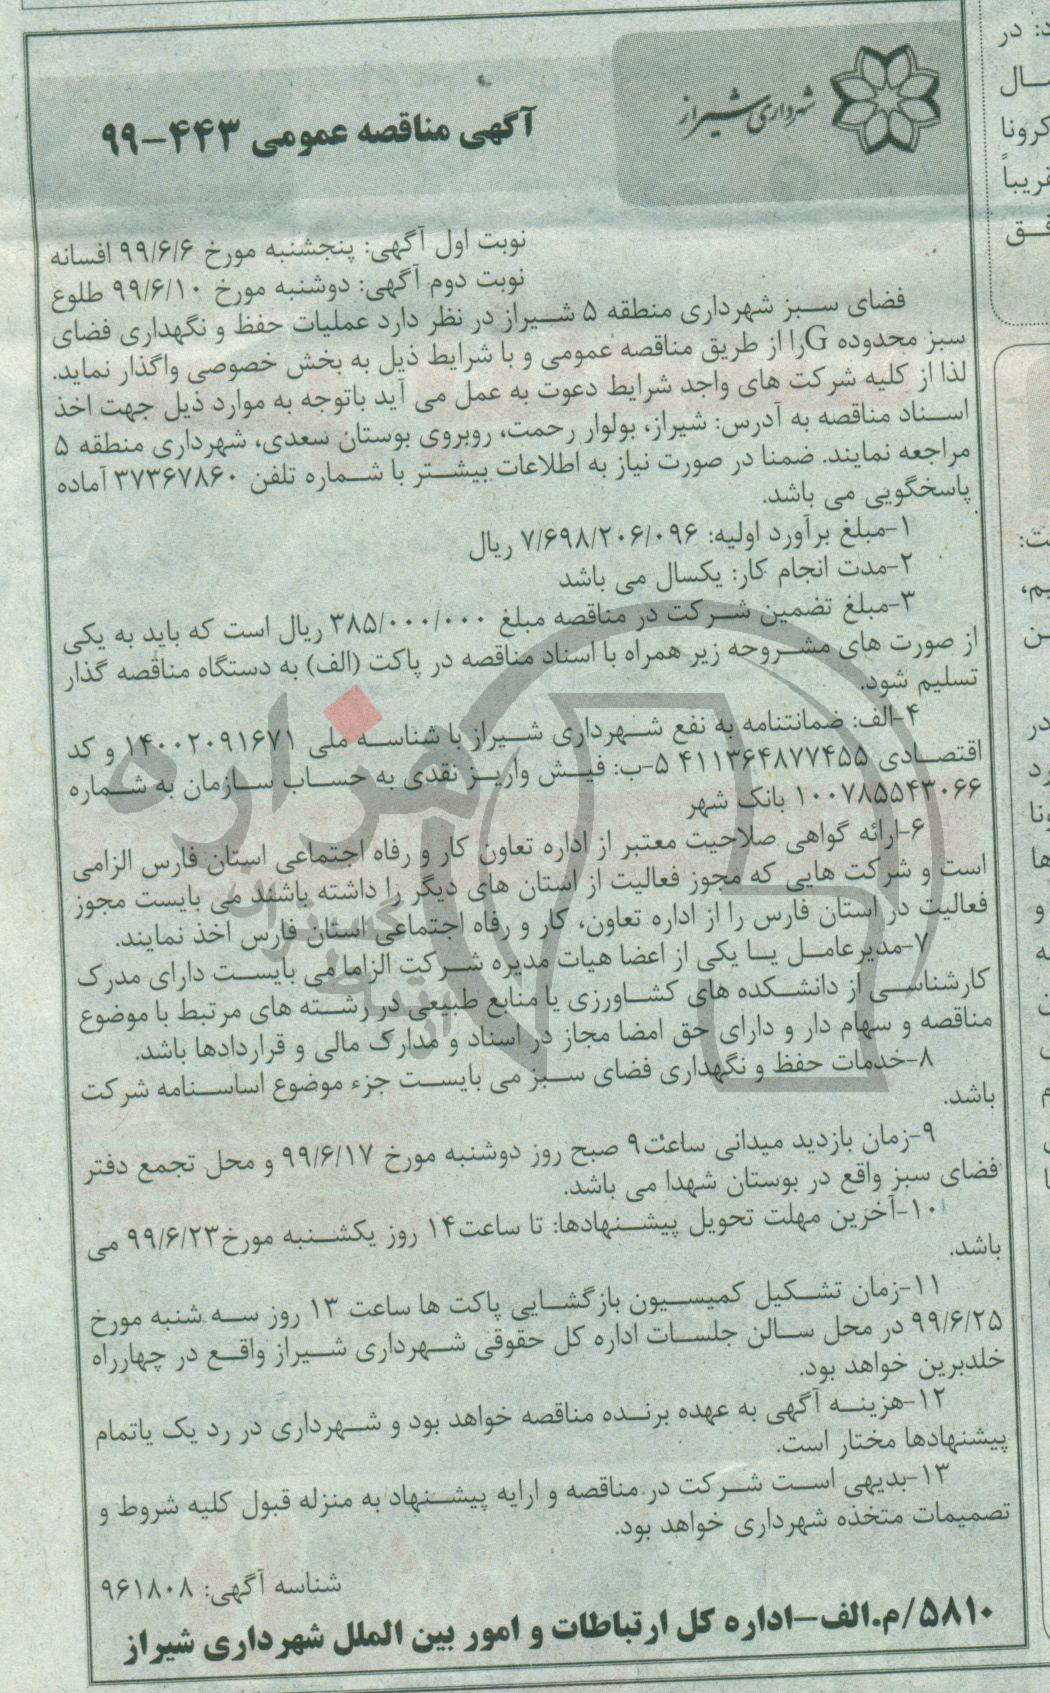 شهرداری شیراز
آگهی مناقصه عمومی ۴۴۳-۹۹
نوبت اول آگهی: پنجشنبه مورخ ۹۹/۶/۶ افسانه
نوبت دوم آگهی: دوشنبه مورخ ۹۹/۶/۱۰ طلوع
فضای سبز شهرداری منطقه ۵ شیراز در نظر دارد عملیات حفظ و نگهداری فضای
سبز محدوده G را از طریق مناقصه عمومی و با شرایط ذیل به بخش خصوصی واگذار نماید.
لذا از کلیه شرکت های واجد شرایط دعوت به عمل می آید باتوجه به موارد ذیل جهت اخذ
اسناد مناقصه به آدرس: شیراز، بولوار رحمت، روبروی بوستان سعدی، شهرداری منطقه ۵
مراجعه نمایند. ضمنا در صورت نیاز به اطلاعات بیشتر با شماره تلفن ۳۷۳۶۷۸۶۰ آماده
پاسخگویی می باشد.
۱-مبلغ برآورد اولیه: ۷/۶۹۸/۲۰۶/۰۹۶ ریال
۲-مدت انجام کار: یکسال می باشد
۳-مبلغ تضمین شرکت در مناقصه مبلغ ۳۸۵/۰۰۰/۰۰۰ ریال است که باید به یکی
از صورت های مشروحه زیر همراه با اسناد مناقصه در پاکت (الف) به دستگاه مناقصه گذار
تسلیم شود.
۴-الف: ضمانتنامه به نفع شهرداری شیراز با شناسه ملی ۱۴۰۰۲۰۹۱۶۷۱ و کد
اقتصادی ۴۱۱۳۶۴۸۷۷۴۵۵ ۵-ب: فیش واریز نقدی به حساب سازمان به شماره
۱۰۰۷۸۵۵۴۳۰۶۶ بانک شهر
۶-ارائه گواهی صلاحیت معتبر از اداره تعاون کار و رفاه اجتماعی استان فارس الزامی
است و شرکت هایی که مجوز فعالیت از استان های دیگر را داشته باشند می بایست مجوز
فعالیت در استان فارس را از اداره تعاون، کار و رفاه اجتماعی استان فارس اخذ نمایند.
۷-مدیرعامل یا یکی از اعضا هیات مدیره شرکت الزاما می بایست دارای مدرک
کارشناسی از دانشکده های کشاورزی یا منابع طبیعی در رشته های مرتبط با موضوع
مناقصه و سهام دار و دارای حق امضا مجاز در اسناد و مدارک مالی و قراردادها باشد.
۸-خدمات حفظ و نگهداری فضای سبز می بایست جزء موضوع اساسنامه شرکت
باشد.
۹-زمان بازدید میدانی ساعت۹ صبح روز دوشنبه مورخ ۹۹/۶/۱۷ و محل تجمع دفتر
فضای سبز واقع در بوستان شهدا می باشد.
۱۰-آخرین مهلت تحویل پیشنهادها: تا ساعت۱۴ روز یکشنبه مورخ۹۹/۶/۲۳ می
باشد.
۱۱-زمان تشکیل کمیسیون بازگشایی پاکت ها ساعت ۱۳ روز سه شنبه مورخ
۹۹/۶/۲۵ در محل سالن جلسات اداره کل حقوقی شهرداری شیراز واقع در چهارراه
خلدبرین خواهد بود.
۱۲-هزینه آگهی به عهده برنده مناقصه خواهد بود و شهرداری در رد یک یاتمام
پیشنهادها مختار است.
۱۳-بدیهی است شرکت در مناقصه و ارایه پیشنهاد به منزله قبول کلیه شروط و
تصمیمات متخذه شهرداری خواهد بود.
شناسه آگهی: ۹۶۱۸۰۸
۵۸۱۰/م.الف-اداره کل ارتباطات و امور بین الملل شهرداری شیراز